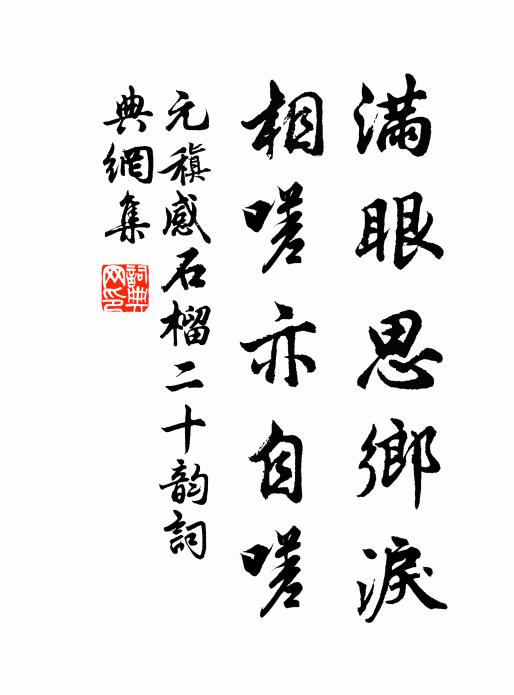 滿眼思鄉淚
相嗟亦自嗟
元稹感石榴二十韵詞
典網集
詞典網印